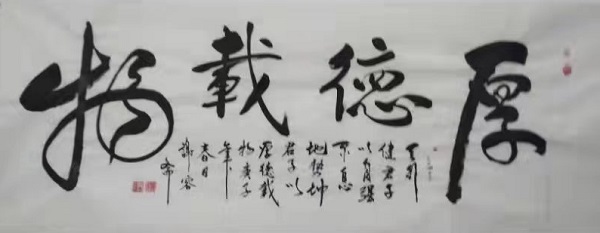 厚德載物
天行
健君子
以自強
不息
地勢坤
君子以
厚德载
物庚子
年
春月